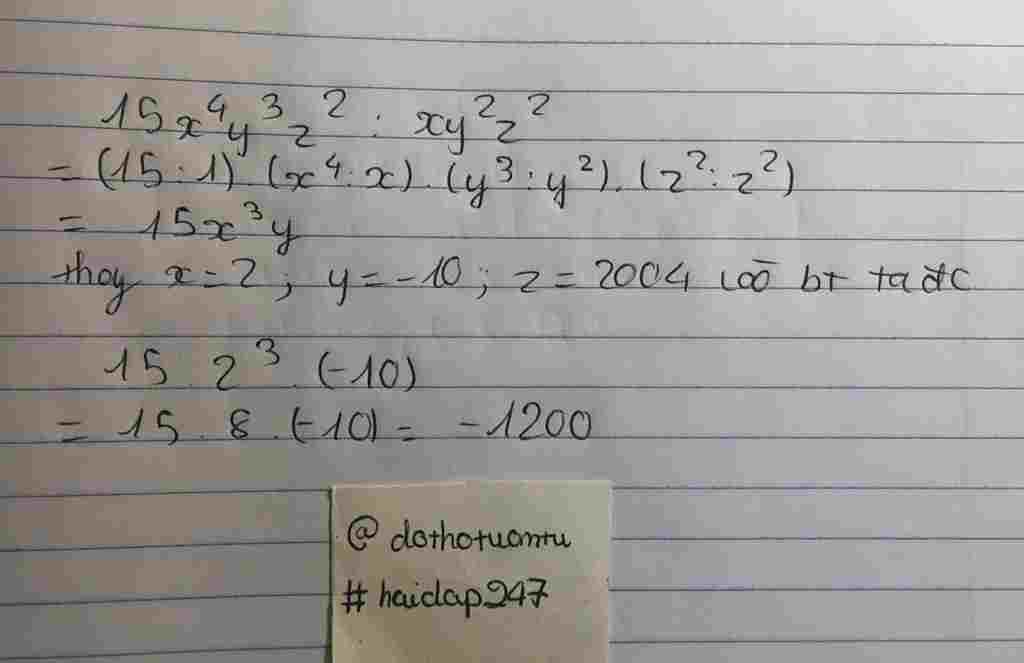 15x⁴y³z² : xy²z²
= (15 : 1) (x⁴ : x) . (y³ : y²) . (z² : z²)
= 15x³y
thay x = 2 ; y = -10 ; z = 2004 vào bt ta đc
15 . 2³ . (-10)
= 15 . 8 . (-10) = -1200
@ dothotuantu
# hoidap247